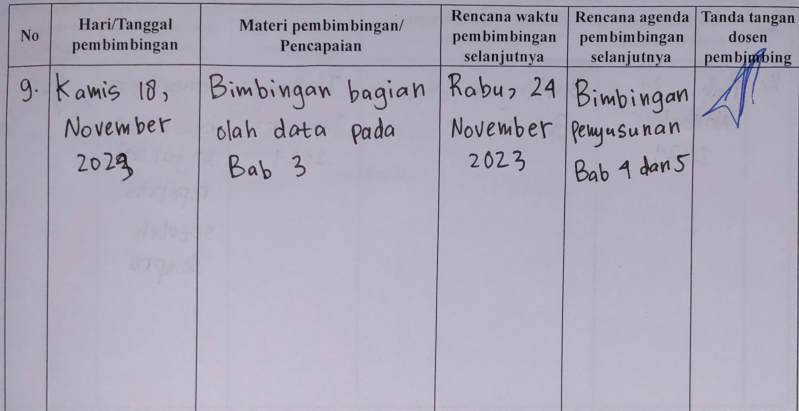 No
Hari/Tanggal
pembimbingan
Materi pembimbingan/
Pencapaian
Rencana waktu
pembimbingan
selanjutnya
Rencana agenda
pembimbingan
selanjutnya
Tanda tangan
dosen
pembimbing
9.
Kamis 18,
November
2023
Bimbingan bagian
olah data pada
Bab 3
Rabu, 24
November
2023
Bimbingan
penyusunan
Bab 4 dan 5